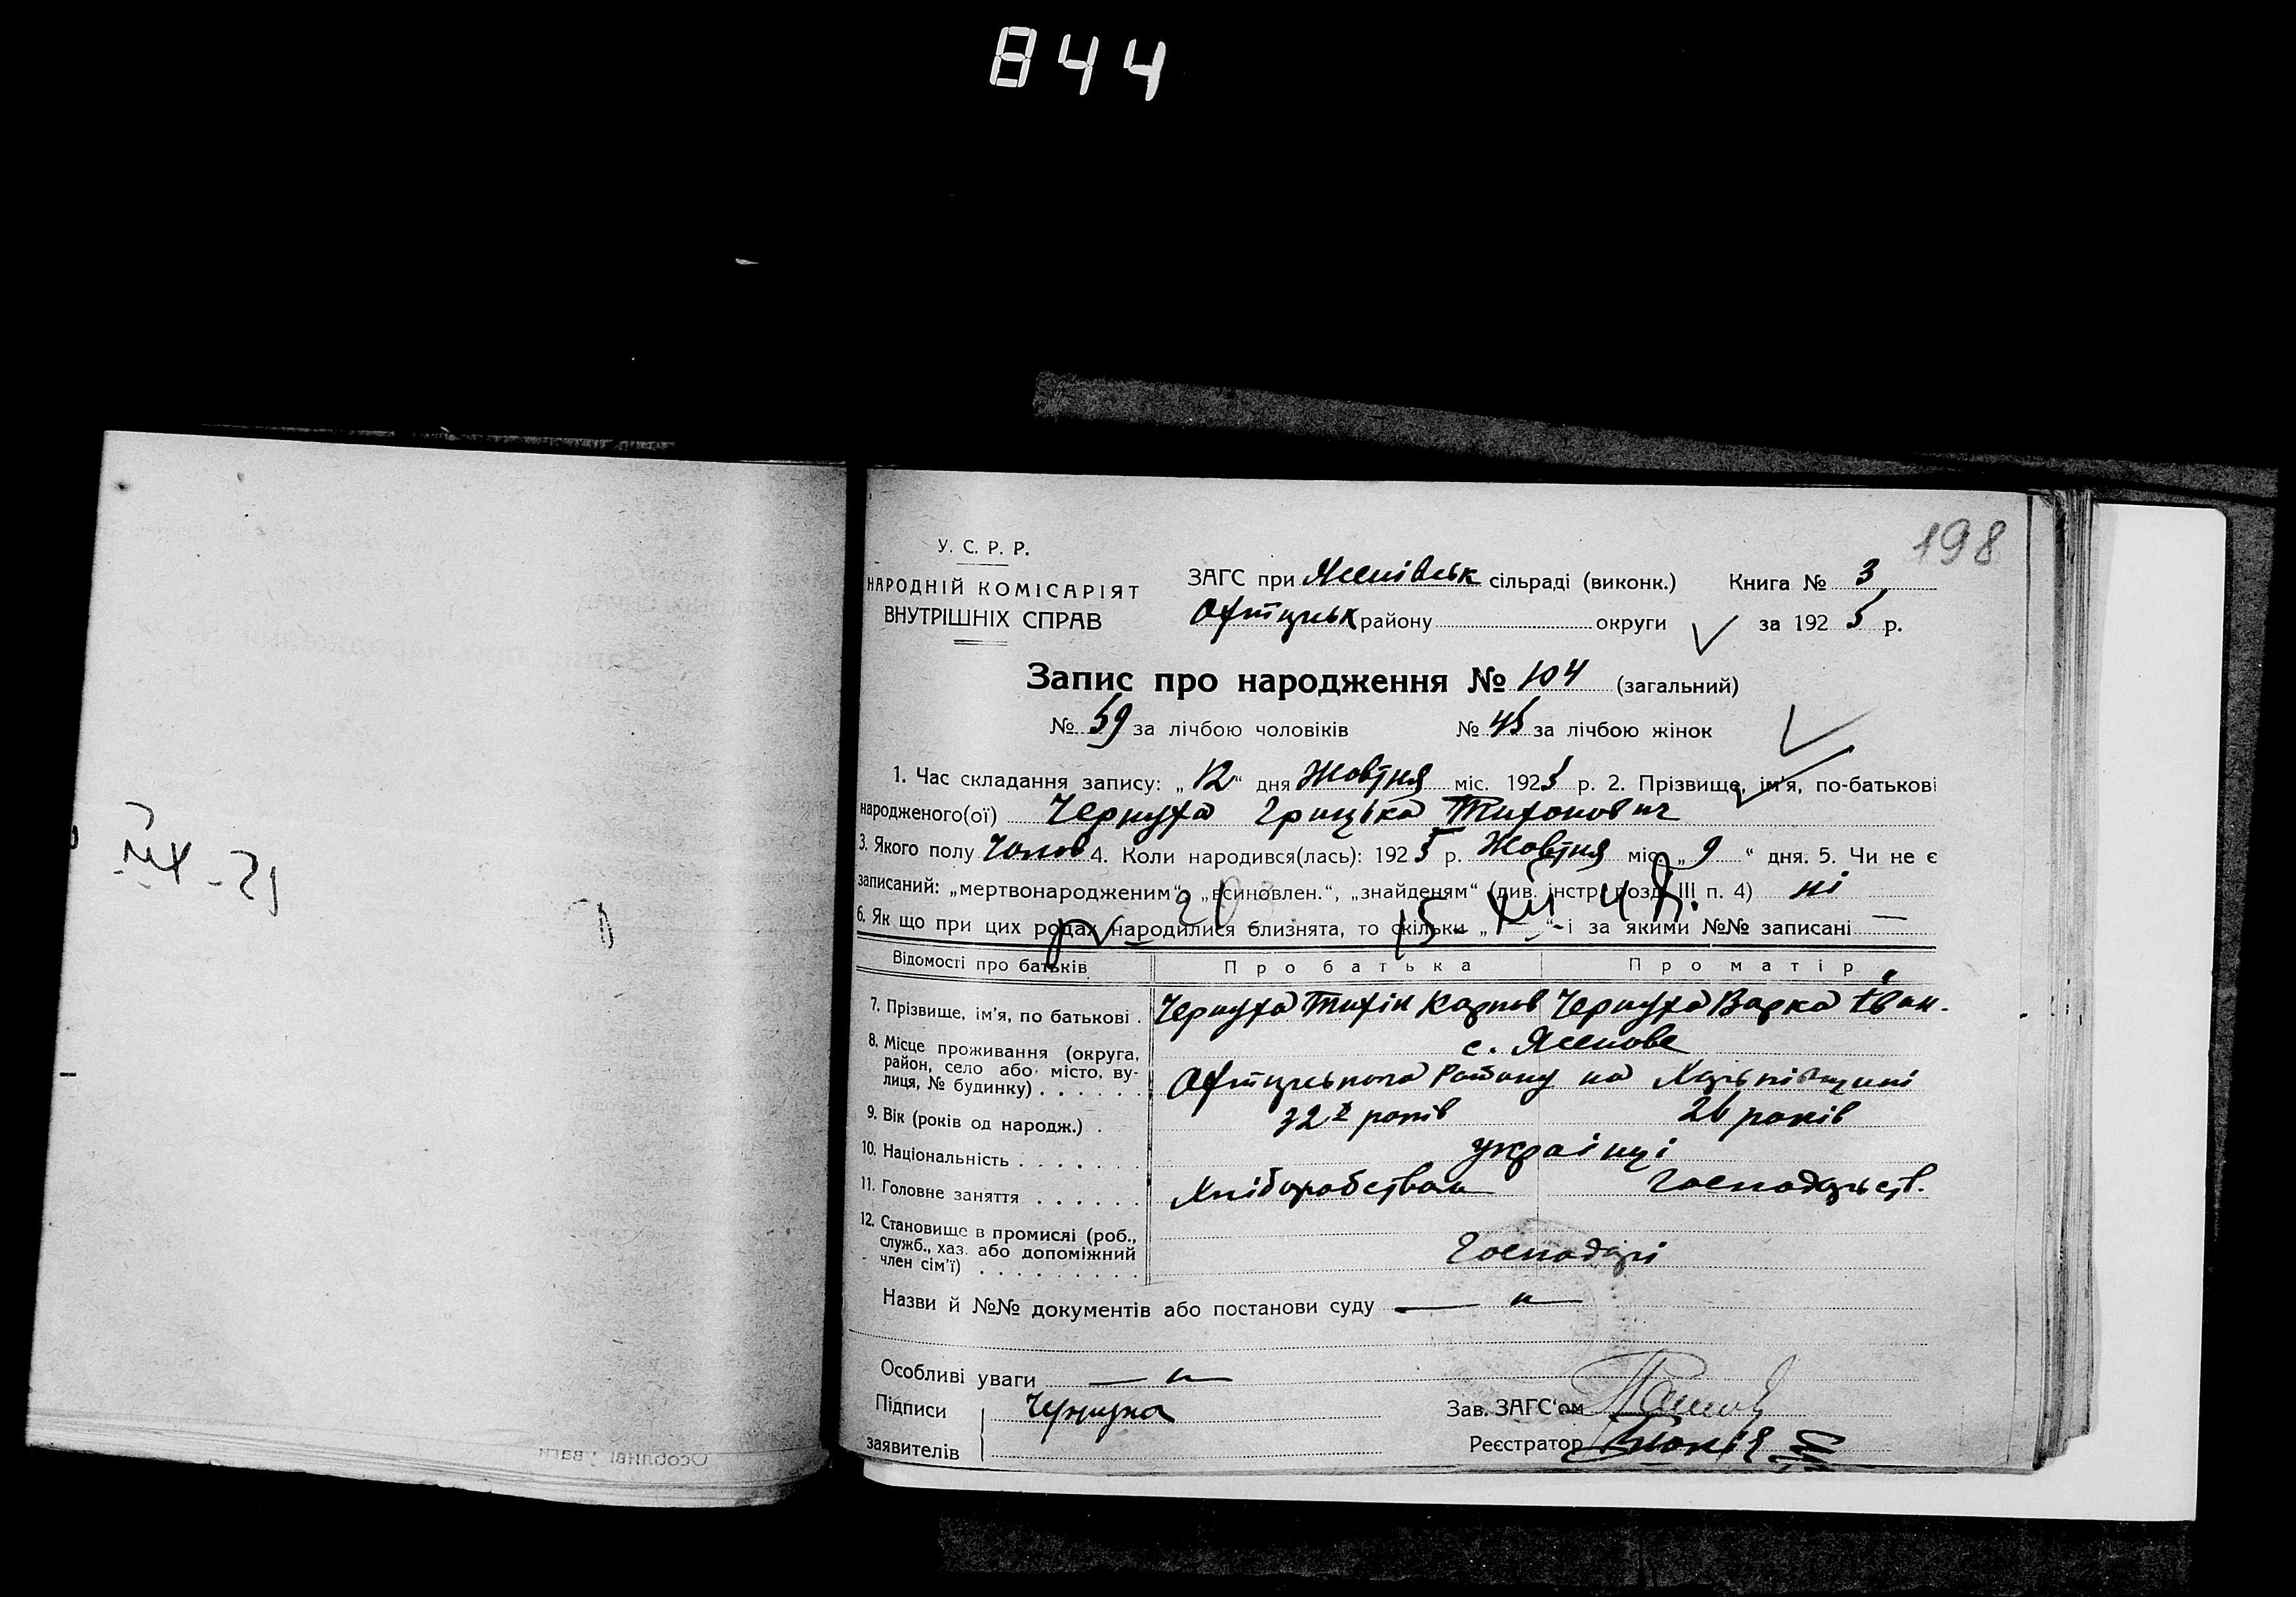 844
198
У. С. Р. Р.
НАРОДНІЙ КОМІСАРІЯТ
ВНУТРІШНІХ СПРАВ
ЗАГС при Ясенівськ сільраді (виконк.) Книга № 3
Охтирськ району округи за 1925 р.
Запис про народження № 104 (загальний)
№ 59 за лічбою чоловіків № 45 за лічбою жінок
1. Час складання запису: „12“ дня Жовтня міс. 1925 р. 2. Прізвище, ім'я, по-батькові
народженого(ої) Чернуха Грицька Тихонович
3. Якого полу Чолов 4. Коли народився(лась): 1925 р. Жовтня міс. „9“ дня. 5. Чи не є
записаний: „мертвонародженим“, „всиновлен.“, „знайденям“ (див. інстр. розд. III п. 4) ні
6. Як що при цих родах народилися близнята, то скільки „ “ і за якими №№ записані —
Відомості про батьків Про батька Про матір
7. Прізвище, ім'я, по батькові . Чернуха Тихін Карпов Чернуха Варка Іван.
8. Місце проживання (округа, район, село або місто, вулиця, № будинку) . . . . . . с. Ясенове
Охтирського Району на Харківщині
9. Вік (років од народж.) . 32 років 26 років
10. Національність . . . . . . . українці
11. Головне заняття . . . . . . Хліборобством Господарств.
12. Становище в промислі (роб., служб., хаз. або допоміжний член сім'ї) . . . . . . . . . Господарі
Назви й №№ документів або постанови суду — „ —
Особливі уваги — „ —
Підписи Чернуха Зав. ЗАГС'ом
заявителів Реєстратор
Особливі уваги